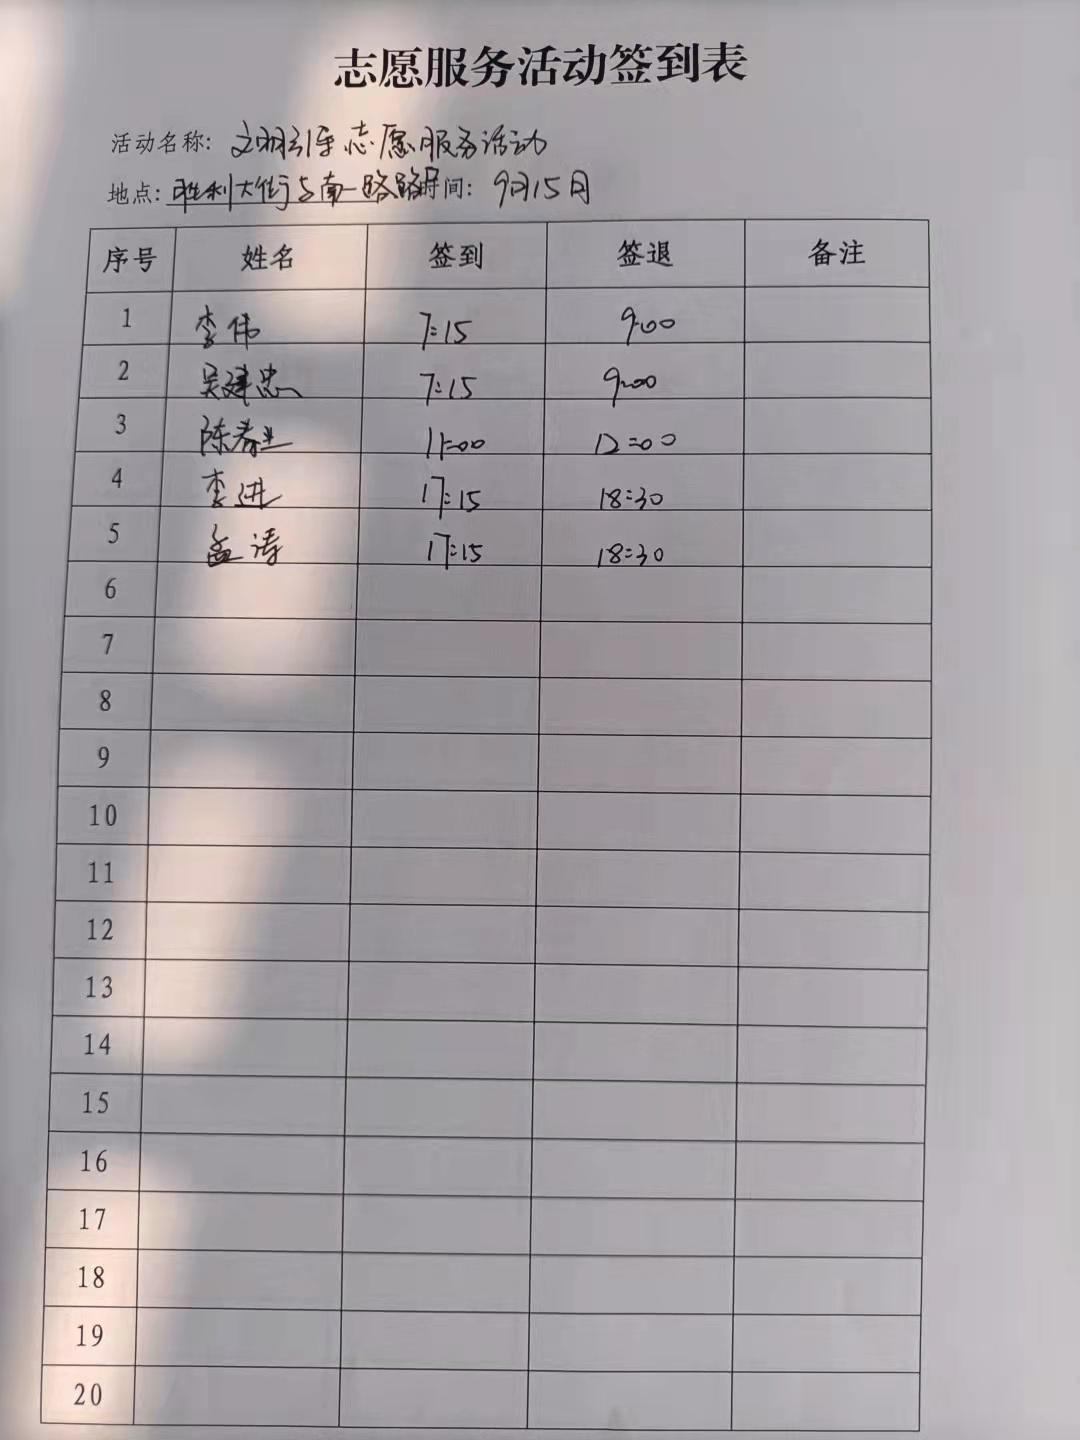 志愿服务活动签到表
活动名称: 文明引导志愿服务活动
地点: 胜利大街与南一路路口时间: 9月15日
序号 姓名 签到 签退 备注
1 李伟 7:15 9:00
2 吴建忠 7:15 9:00
3 陈春 11:00 12:00
4 李进 17:15 18:30
5 孟涛 17:15 18:30
6
7
8
9
10
11
12
13
14
15
16
17
18
19
20